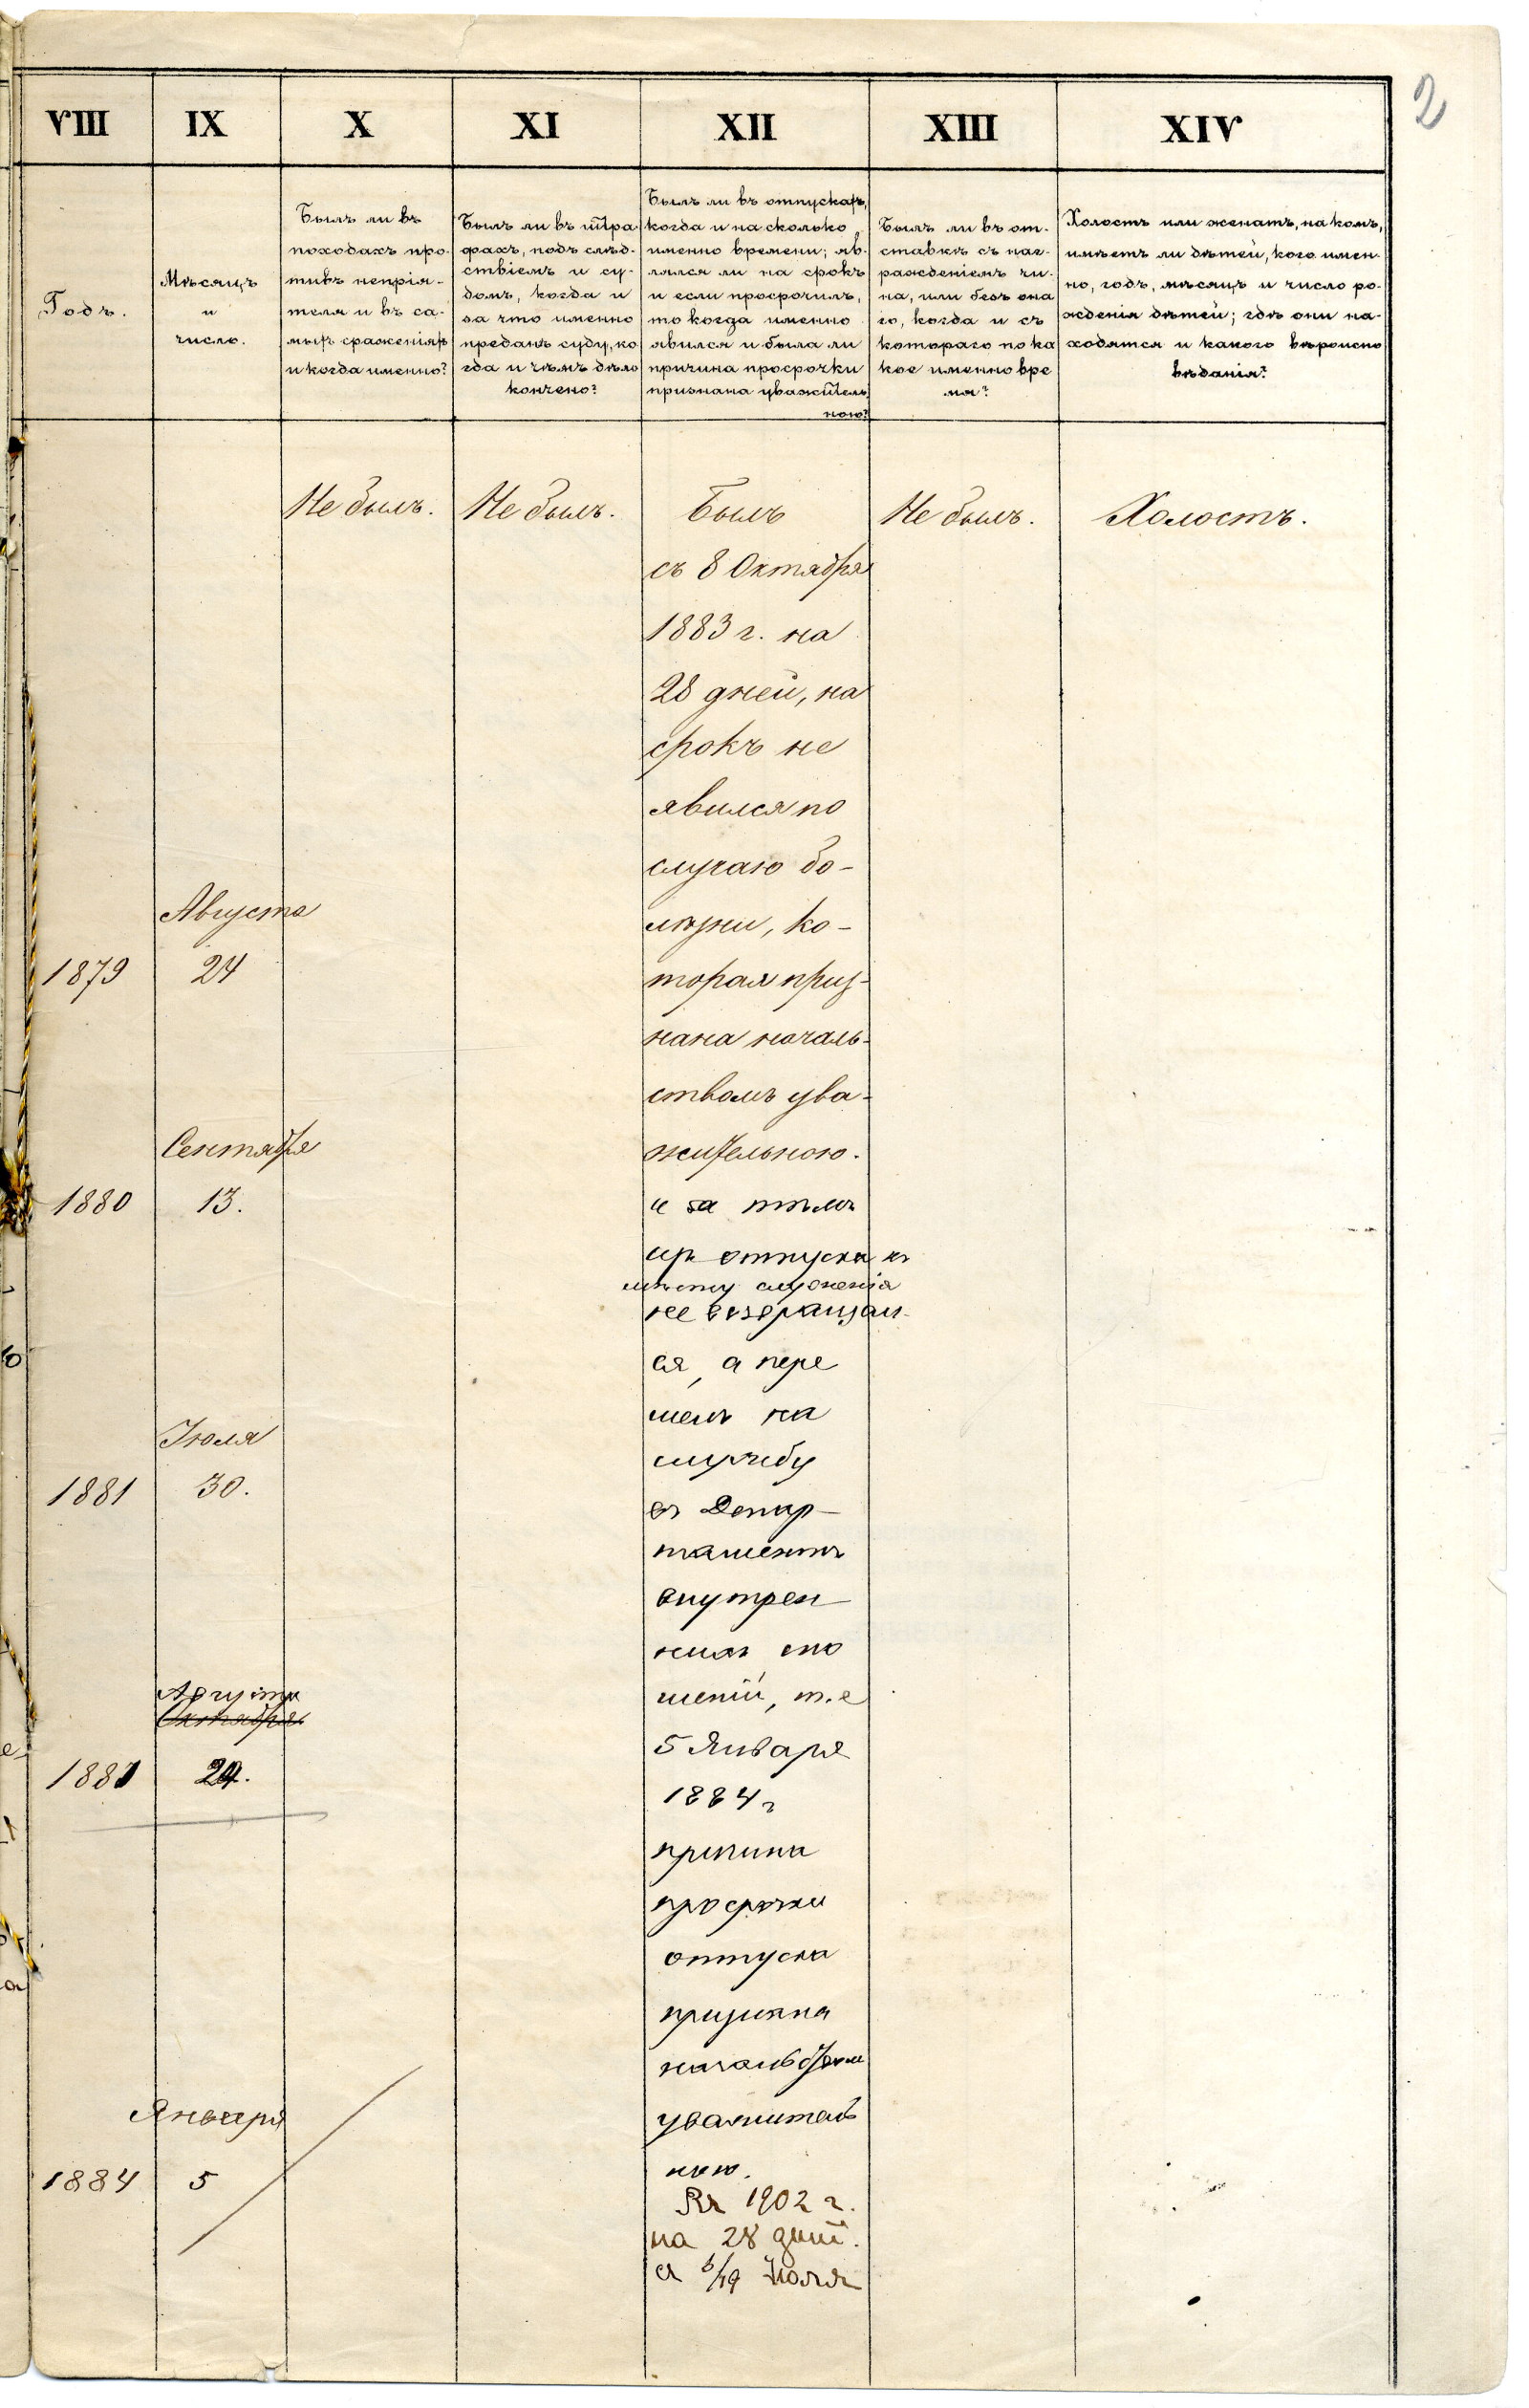 2
VIII
IX
X
XI
XII
XIII
XIV
Годъ.
Мѣсяцъ
и
число.
Былъ ли въ
походахъ про-
тивъ непрія-
теля и въ са-
мыхъ сраженіяхъ
и когда именно?
Былъ ли въ штра
фахъ, подъ слѣд-
ствіемъ и су-
домъ, когда и
за что именно
преданъ суду, ко
гда и чѣмъ дѣло
кончено?
Былъ ли въ отпускахъ,
когда и на сколько
именно времени; яв-
лялся ли на срокъ
и если просрочилъ,
то когда именно
явился и была ли
причина просрочки
признана уважитель
ною?
Былъ ли въ от-
ставкѣ съ наг-
ражденіемъ чи-
на, или безъ она
го, когда и съ
котораго по ка
кое именно вре
мя?
Холостъ или женатъ, на комъ,
имѣетъ ли дѣтей, кого имен-
но, годъ, мѣсяцъ и число ро-
жденія дѣтей; гдѣ они на-
ходятся и какого вѣроиспо
вѣданія?
Августа
1879 24
Сентября
1880 13.
Іюля
1881 30.
Августа
Октября
1881 29.
Января
1884 5
Не былъ.
Не былъ.
Былъ
съ 8 Октября
1883 г. на
28 дней, на
срокъ не
явился по
случаю бо-
лѣзни, ко-
торая приз-
нана началь-
ствомъ ува-
жительною.
и за тѣмъ
изъ отпуска къ
мѣсту служенія
не возвращал-
ся, а пере
шелъ на
службу
въ Депар-
таментъ
внутрен-
нихъ сно
шеній, т.е
5 Января
1884 г
причина
просрочки
отпуска
признана
начальствомъ
уважитель
ною.
Въ 1902 г.
на 28 дней.
съ 6/19 Іюля
Не былъ.
Холостъ.